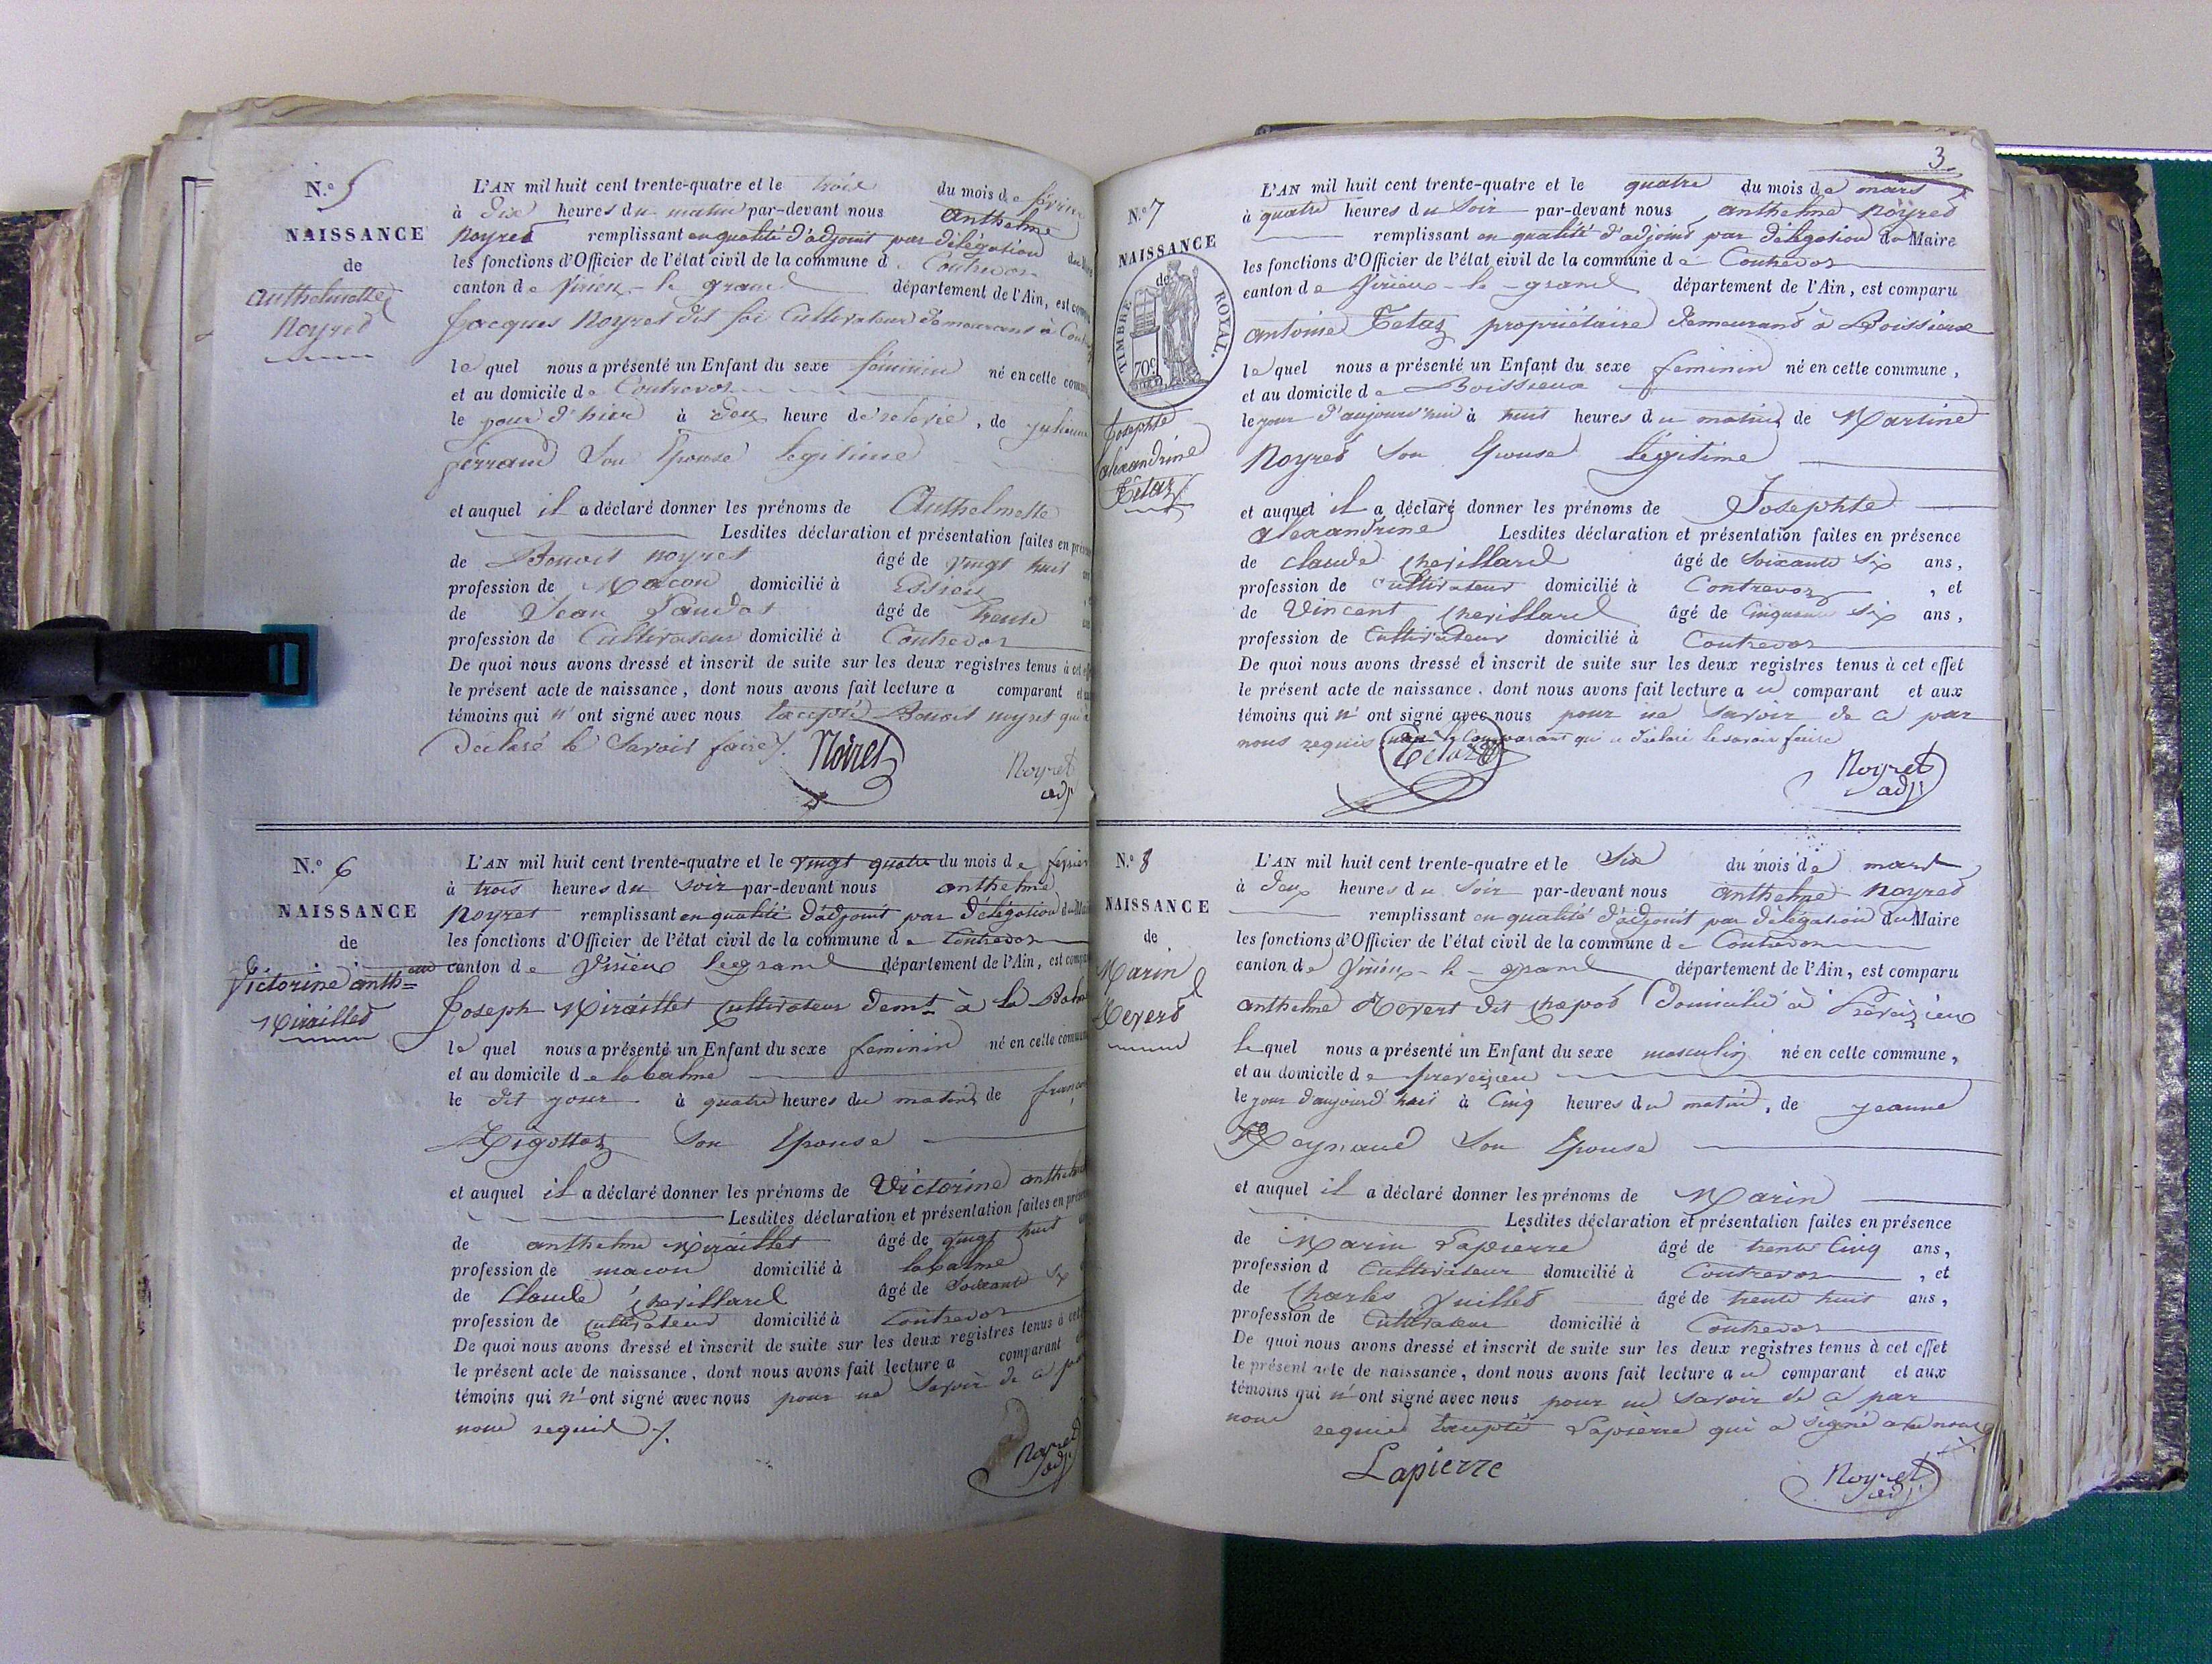 N.o 5
NAISSANCE
de
Anthelmette
Noyret
L'AN mil huit cent trente-quatre et le trois du mois de février
à dix heures du matin par-devant nous Anthelme
Noyret remplissant en qualité d'adjoint par délégation du
les fonctions d'Officier de l'état civil de la commune de Contrevoz
canton de Virieu-le grand département de l'Ain, est
Jacques Noyret dit cultivateur demeurant à
le quel nous a présenté un Enfant du sexe féminin né en cette
et au domicile de Contrevoz
le jour d'hier à deux heure de relevée, de
ferrand son Epouse legitime
et auquel il a déclaré donner les prénoms de Anthelmette
Lesdites déclaration et présentation faites en
de Benoit noyret âgé de vingt huit
profession de Macon domicilié à Essieu
de Jean âgé de trente
profession de Cultivateur domicilié à Contrevoz
De quoi nous avons dressé et inscrit de suite sur les deux registres tenus à cet
le présent acte de naissance, dont nous avons fait lecture a comparant et
témoins qui n'ont signé avec nous excepté Benoit noyret qui a
déclaré le savoir faire ./.
Noiret
Noyret
adj
N.o 6
NAISSANCE
de
Victorine anth=
Miraillet
L'AN mil huit cent trente-quatre et le vingt quatre du mois de fevrier
à trois heures du soir par-devant nous anthelme
Noyret remplissant en qualité d'adjoint par délégation du
les fonctions d'Officier de l'état civil de la commune de Contrevoz
canton de Virieu legrand département de l'Ain, est
Joseph Miraillet cultivateur demt à la
le quel nous a présenté un Enfant du sexe feminin né en cette
et au domicile de la balme
le dit jour à quatre heures du matin de
Rigottaz son Epouse
et auquel il a déclaré donner les prénoms de Victorine
Lesdites déclaration et présentation faites en
de anthelme Miraillet âgé de vingt huit
profession de macon domicilié à labalme
de Claude Chevillard âgé de soixante six
profession de cultivateur domicilié à Contrevoz
De quoi nous avons dressé et inscrit de suite sur les deux registres tenus à cet
le présent acte de naissance, dont nous avons fait lecture a comparant
témoins qui n'ont signé avec nous pour ne savoir de ce
nous requis ./.
Noyret
adj
3
N.o 7
NAISSANCE
de
TIMBRE ROYAL.
70c
Josephte
alexandrine
Tétaz
L'AN mil huit cent trente-quatre et le quatre du mois de mars
à quatre heures du soir par-devant nous anthelme Noyret
remplissant en qualité d'adjoint par délégation du Maire
les fonctions d'Officier de l'état civil de la commune de Contrevoz
canton de Virieu-le-grand département de l'Ain, est comparu
antoine Tetaz propriétaire demeurant à Boissieux
le quel nous a présenté un Enfant du sexe feminin né en cette commune,
et au domicile de Boissieux
le jour d'aujourd'hui à huit heures du matin de Martine
Noyret son Epouse légitime
et auquel il a déclaré donner les prénoms de Josephte
alexandrine Lesdites déclaration et présentation faites en présence
de claude Chevillard âgé de soixante six ans,
profession de cultivateur domicilié à Contrevoz, et
de Vincent Chevillard âgé de cinquante six ans,
profession de Cultivateur domicilié à Contrevoz
De quoi nous avons dressé et inscrit de suite sur les deux registres tenus à cet effet
le présent acte de naissance, dont nous avons fait lecture au comparant et aux
témoins qui n'ont signé avec nous pour ne savoir de ce par
nous requis le Comparant qui a déclaré le savoir faire
Tetaz
Noyret
adj
N.o 8
NAISSANCE
de
Marin
Revert
L'AN mil huit cent trente-quatre et le six du mois de mars
à deux heures du soir par-devant nous anthelme Noyret
remplissant en qualité d'adjoint par délégation du Maire
les fonctions d'Officier de l'état civil de la commune de Contrevoz
canton de Virieu-le-grand département de l'Ain, est comparu
anthelme Revert dit Chapot domicilié à Préveizieu
le quel nous a présenté un Enfant du sexe masculin né en cette commune,
et au domicile de preveizieu
le jour d'aujourd'hui à cinq heures du matin, de jeanne
Reynaud son Epouse
et auquel il a déclaré donner les prénoms de Marin
Lesdites déclaration et présentation faites en présence
de Marin Lapierre âgé de trente cinq ans,
profession d Cultivateur domicilié à Contrevoz, et
de Charles Juillet âgé de trente huit ans,
profession de Cultivateur domicilié à Contrevoz
De quoi nous avons dressé et inscrit de suite sur les deux registres tenus à cet effet
le présent acte de naissance, dont nous avons fait lecture au comparant et aux
témoins qui n'ont signé avec nous pour ne savoir de ce par
nous requis excepté Lapierre qui a signé avec nous
Lapierre
Noyret
adj